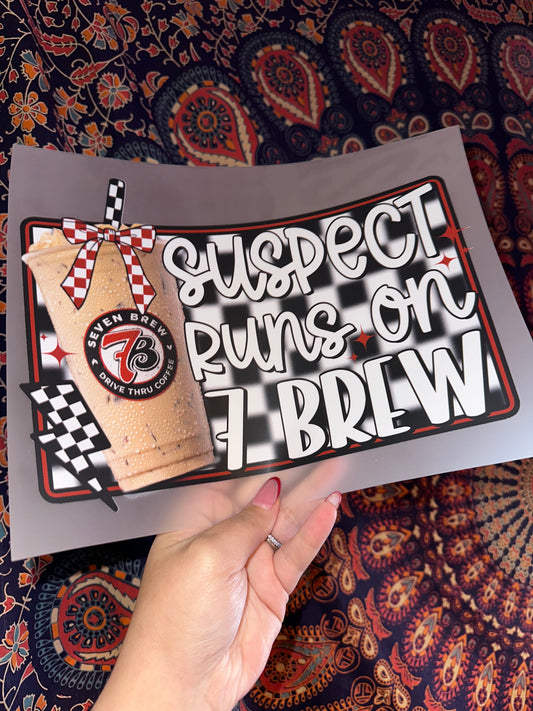 SUSPECT
RUNS ON
7 BREW
SEVEN BREW
7B
DRIVE THRU COFFEE